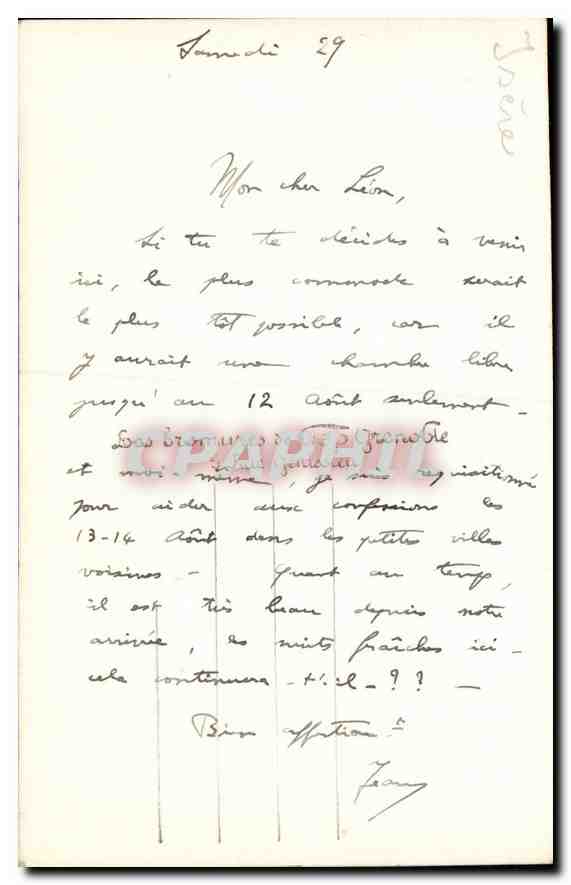 Samedi 29
Isère
Mon cher Léon,
Si tu te décides à venir
ici, le plus commode serait
le plus tôt possible, car il
y aurait une chambre libre
jusqu'au 12 Août seulement -
Les bromures de Grenoble
CPAPHIL
et moi-même, je suis réquisitionné
pour aider aux confessions les
13-14 Août dans les petites villes
voisines - Quant au temps,
il est très beau depuis notre
arrivée, les nuits fraîches ici -
cela continuera-t'il - ? ? -
Bien affection.t
Jean